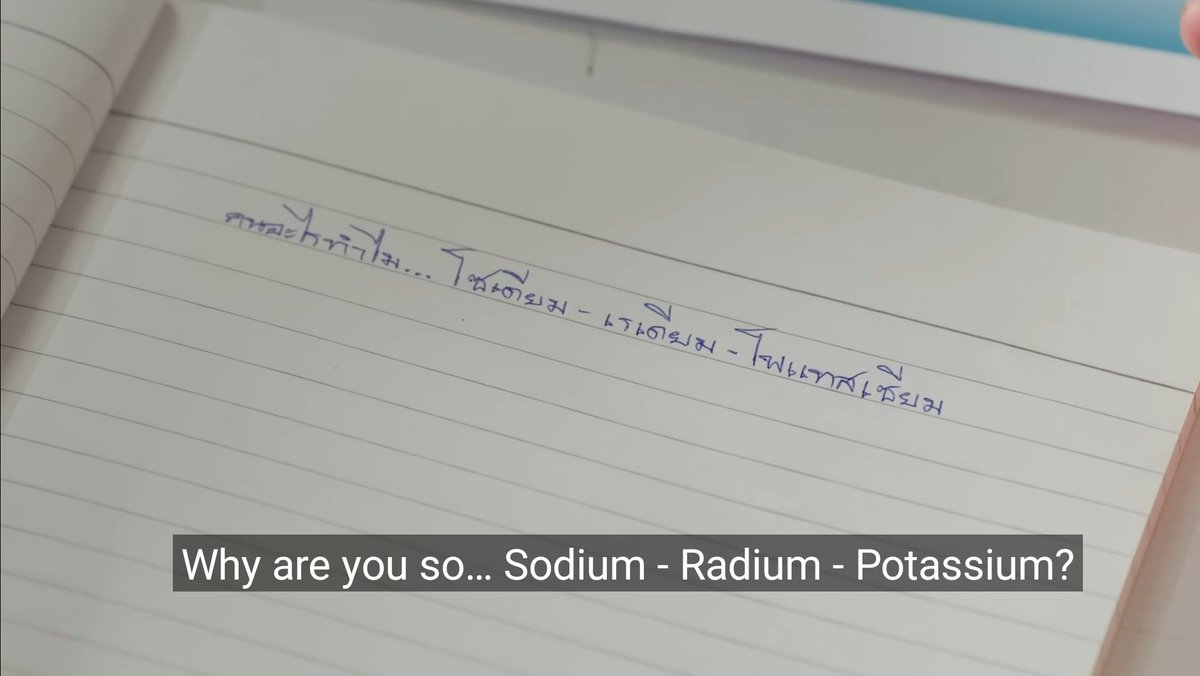 คนอะไรทำไม... โซเดียม - เรเดียม - โพแทสเซียม
Why are you so... Sodium - Radium - Potassium?